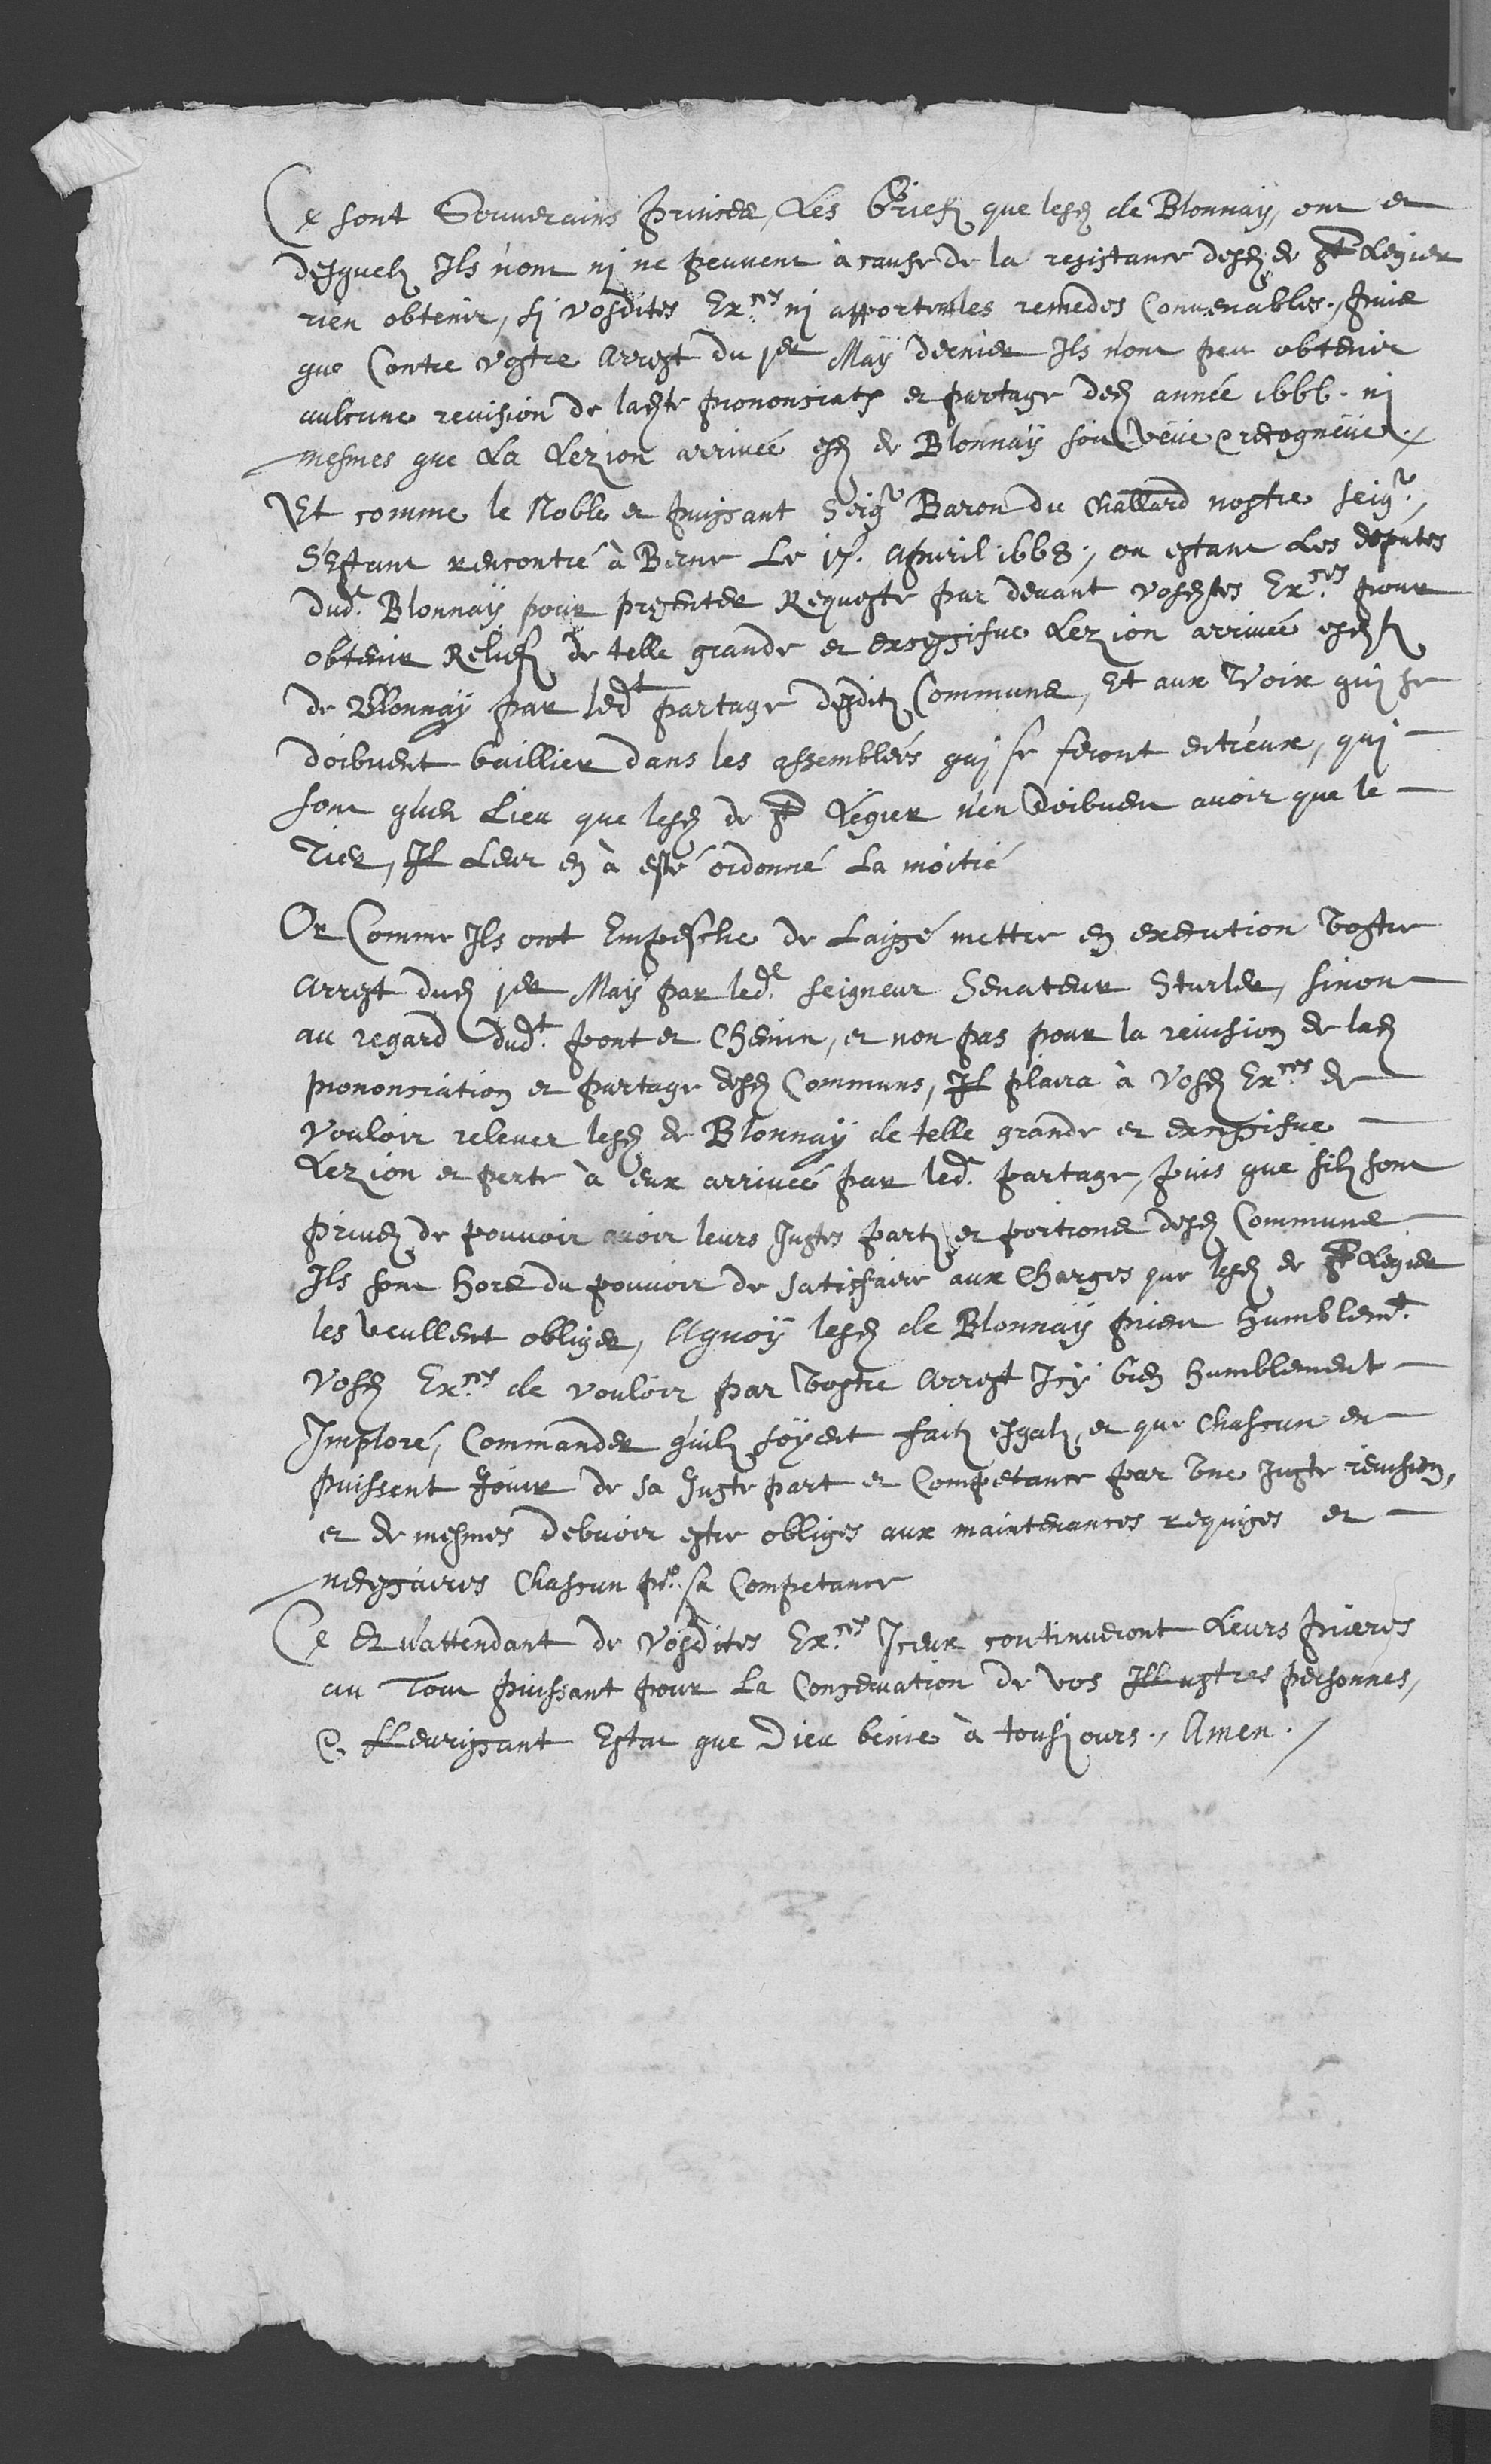 Ce sont Souverains Princes, Les Griefz que lesd de Blonnaÿ, ont et
desquelz Ils n'ont ni ne peuvent à cause de la resistance desd de St Legier
rien obtenir, si vosdites Exces ni apportent les remedes Convenables., Puis
que Contre vostre Arrest du 1er Maÿ dernier Ils n'ont peu obtenir
aulcune revision de ladte prononciat et partage ded année 1666. ni
mesmes que La Lezion arrivée esd de Blonnaÿ soit veüe & recogneüe.
Et comme le Noble et puissant Seigr Baron du Chastelard nostre seigr,
S'estant rencontré à Berne Le 17. Apvril 1668., ou estant Les deputés
dud. Blonnaÿ pour presenter Requeste par devant vosdtes Exces pour
obtenir Relief de telle grande et excessifve Lezion arrivée esd
de Blonnaÿ par ledt partage desditz Communs, Et aux Voix qui se
doibvent baillier dans les assemblées qui se feront entr'eux, qui
sont qu'en Lieu que lesd de St Legier n'en doibvent avoir que le
Tier, Il Leur en à esté ordonné La moitié
Or Comme Ils ont Empesche de Laissé mettre en execution Vostre
Arrest dud 1er Maÿ par led. seigneur Senateur Sturler, sinon
au regard dudt. pont et Chemin, et non pas pour la revision de lad
prononciation et partage desd Communs, Il plaira à Vosd Exces de
Vouloir relever lesd de Blonnaÿ de telle grande et excessifve
Lezion et perte à eux arrivée par led. partage, puis que silz sont
privez de pouvoir avoir leurs Justes partz et portions desd Communs
Ils sont hors du pouvoir de satisfaire aux Charges que lesd de St Legier
les veullent obliger, Aquoÿ lesd de Blonnaÿ prient humblemt.
Vosd Exces de vouloir par Vostre Arrest Icÿ bien humblement
Imploré, Commander qu'ilz soÿent faitz esgalz, et que Chascun en
puissent Jouir de sa Juste part et Competance par Une Juste revision,
et de mesmes debvoir estre obligés aux maintenances requises et
necessaires Chascun pr. sa Competance
Ce Et n'attendant de Vosdites Exces Iceux continueront Leurs prieres
au Tout puissant pour La Conservation de vos Illustres personnes,
& fleurissant Estat que Dieu benie à tousjours., Amen.